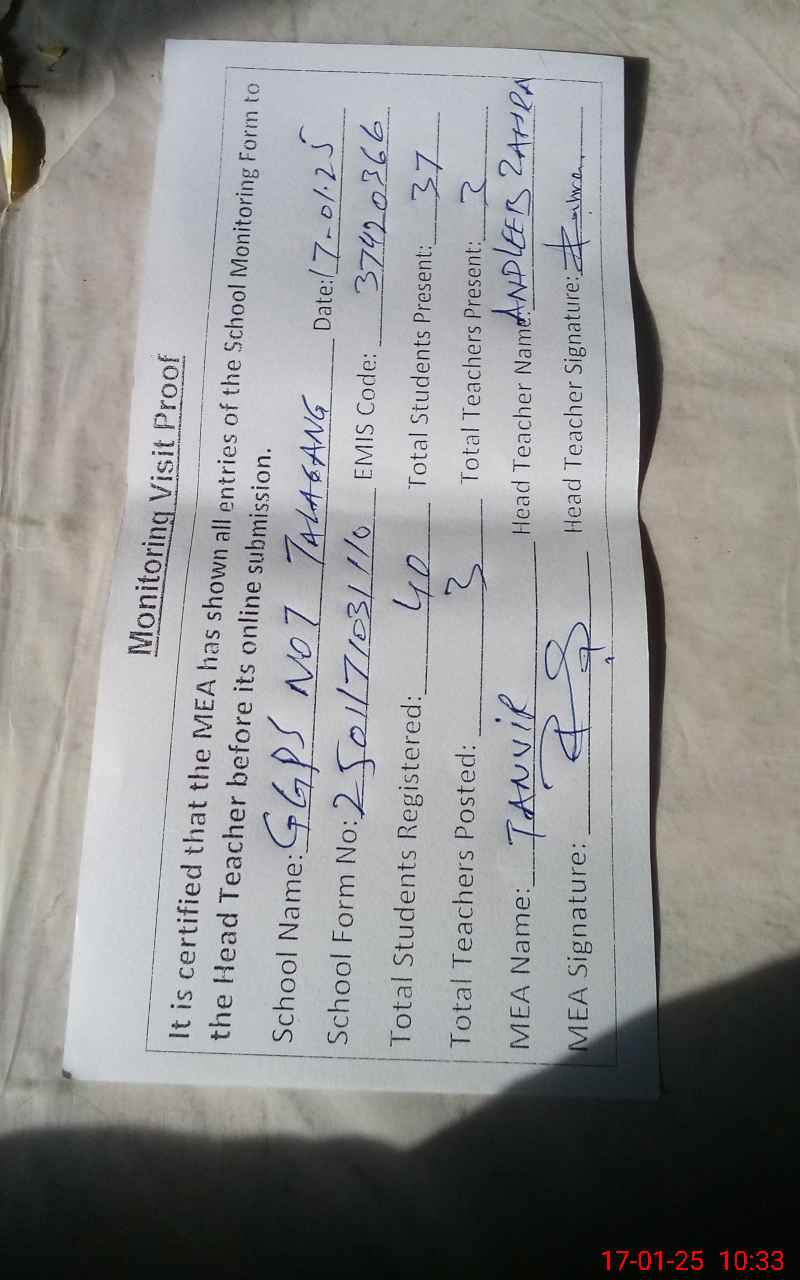 Monitoring Visit Proof
It is certified that the MEA has shown all entries of the School Monitoring Form to
the Head Teacher before its online submission.
School Name: GGPS NO 7 TALAGANG Date: 17-01-25
School Form No: 2501171031110 EMIS Code: 37420366
Total Students Registered: 40 Total Students Present: 37
Total Teachers Posted: 3 Total Teachers Present: 3
MEA Name: TANVIR Head Teacher Name: ANDLEEB ZAHRA
MEA Signature: Head Teacher Signature:
17-01-25 10:33